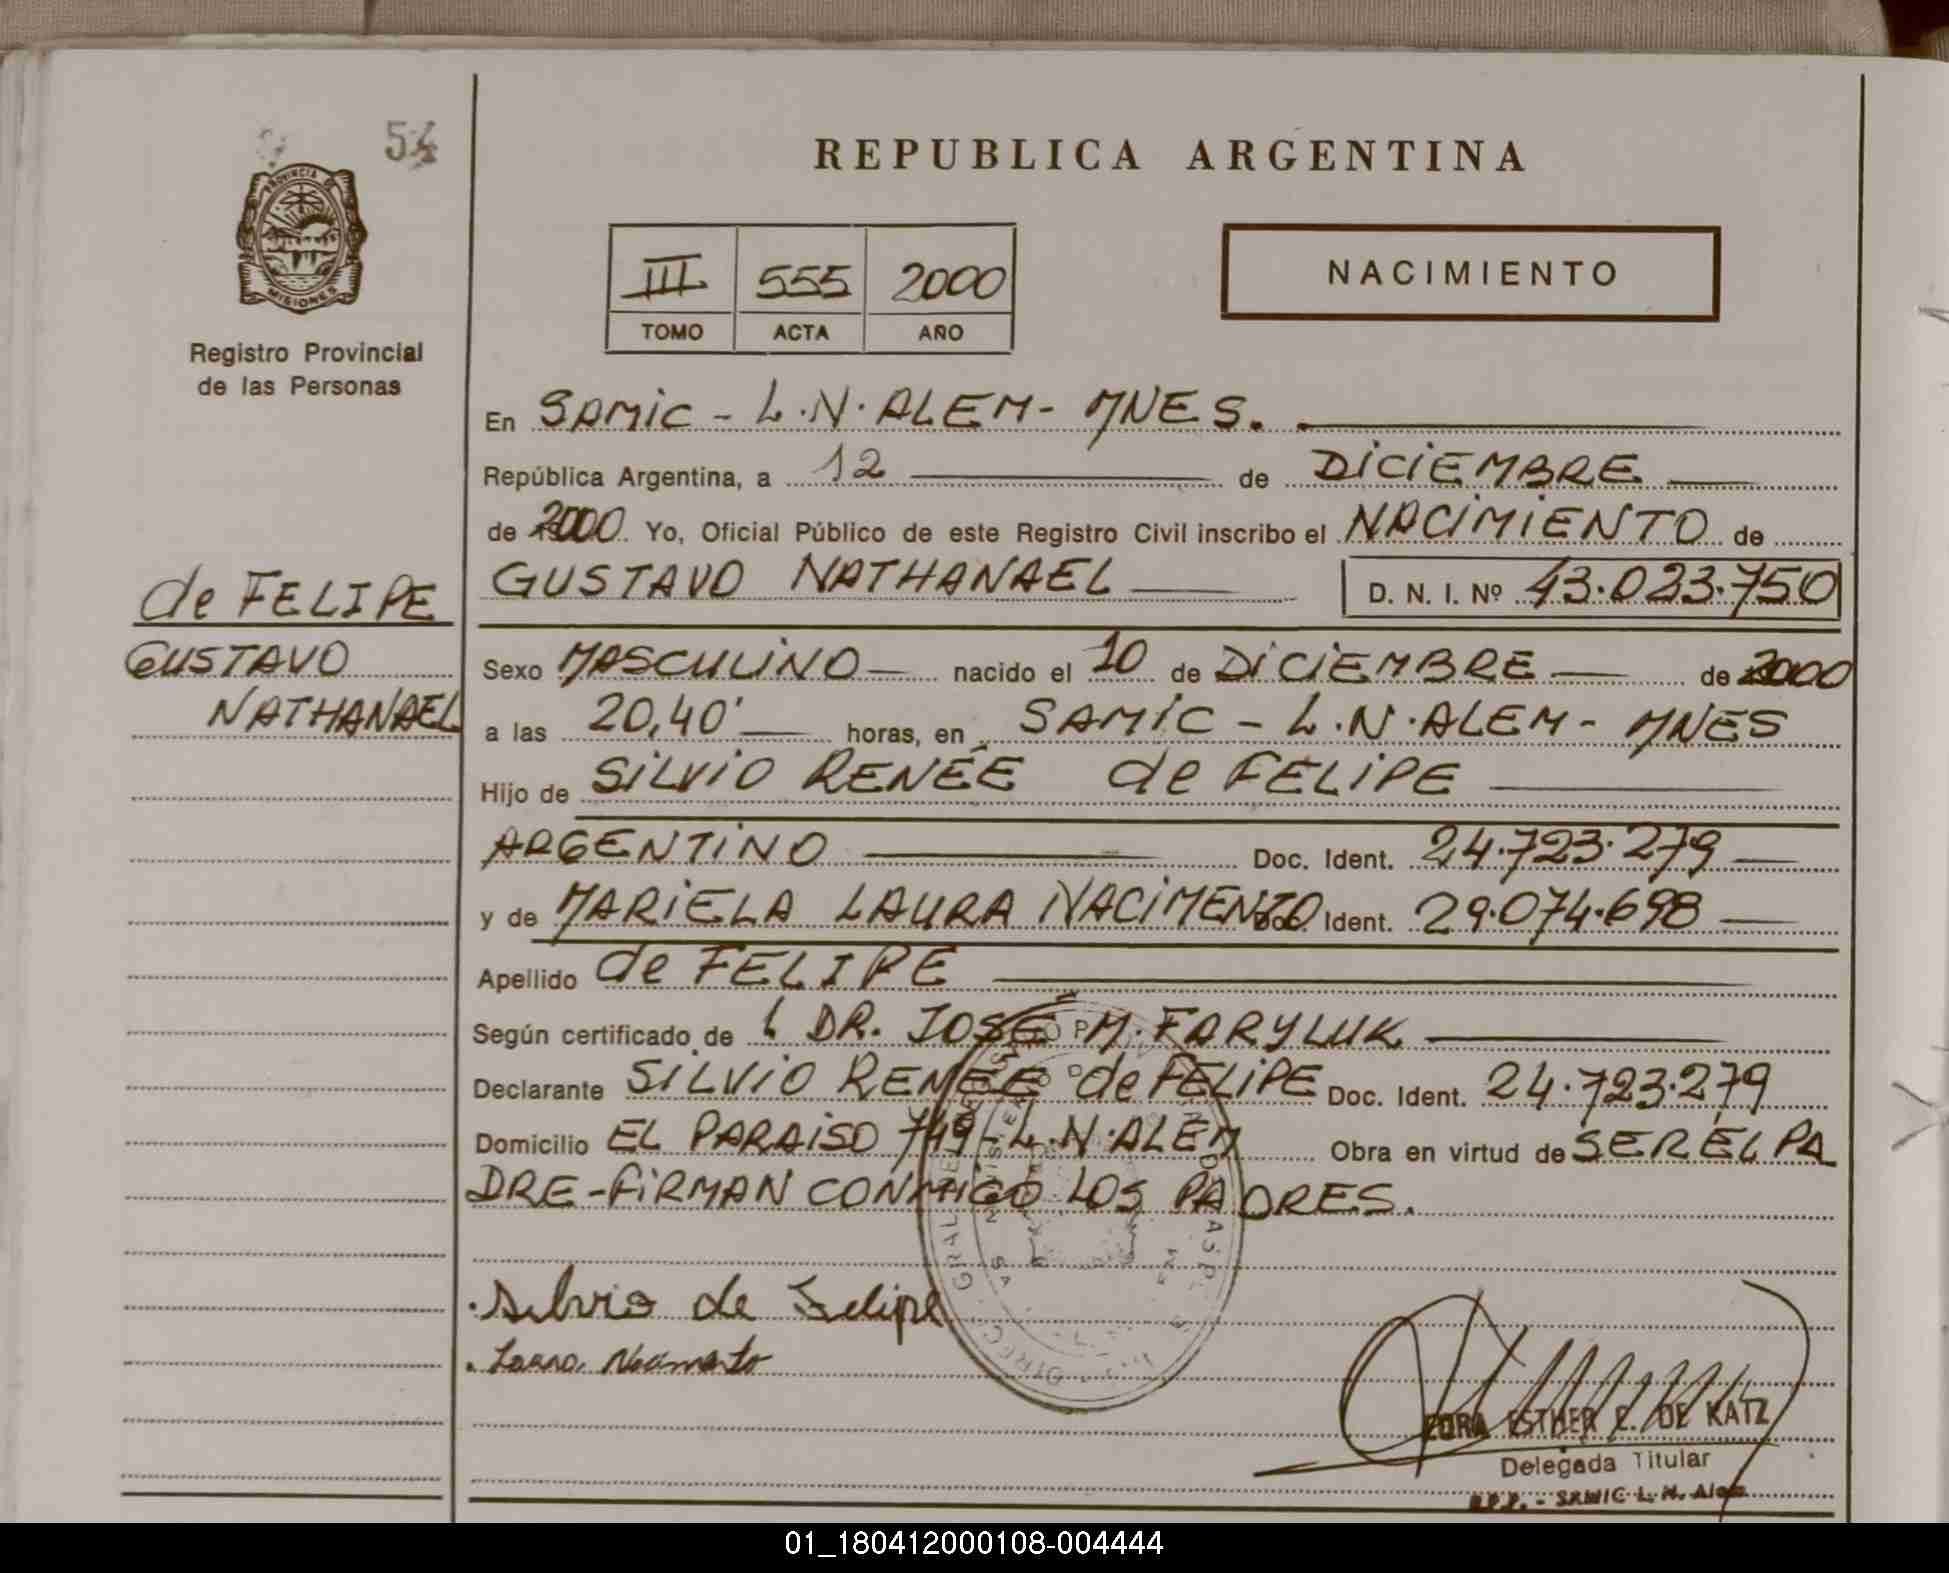 54
PROVINCIA DE
MISIONES
Registro Provincial
de las Personas
de FELIPE
GUSTAVO
NATHANAEL
REPUBLICA ARGENTINA
III 555 2000
TOMO ACTA AÑO
NACIMIENTO
En SAMIC - L.N. ALEM - MNES.
República Argentina, a 12 de DICIEMBRE
de 2000 Yo, Oficial Público de este Registro Civil inscribo el NACIMIENTO de
GUSTAVO NATHANAEL D. N. I. Nº 43.023.750
Sexo MASCULINO nacido el 10 de DICIEMBRE de 2000
a las 20,40' horas, en SAMIC - L.N. ALEM - MNES
Hijo de SILVIO RENÉE de FELIPE
ARGENTINO Doc. Ident. 24.723.279
y de MARIELA LAURA NACIMENTO Doc. Ident. 29.074.698
Apellido de FELIPE
Según certificado de DR. JOSÉ M. FARYLUK
Declarante SILVIO RENÉE de FELIPE Doc. Ident. 24.723.279
Domicilio EL PARAISO 749 - L.N. ALEM Obra en virtud de SER EL PA
DRE - FIRMAN CONMIGO LOS PADRES.
Silvio de Felipe
Laura Nacimento
ESTHER E. DE KATZ
Delegada Titular
R.P.P. - SAMIC L. N. Alem
01_180412000108-004444